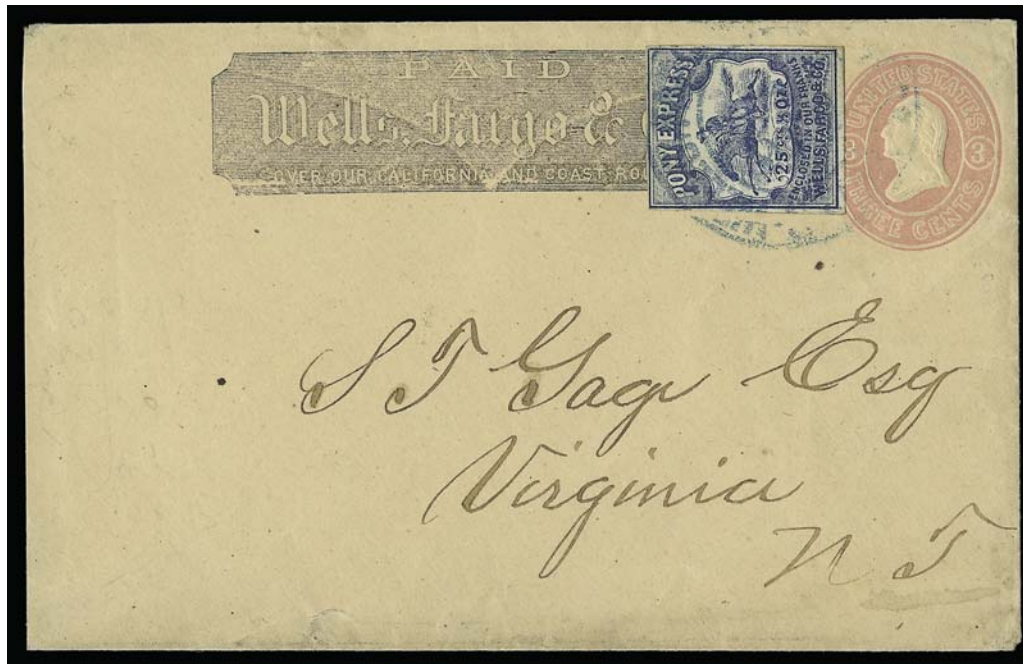 PAID
Wells, Fargo &
OVER OUR CALIFORNIA AND COAST RO
PONY EXPRESS
25 CTS ½ OZ
ENCLOSED IN OUR FRANKS
WELLS, FARGO & CO.
UNITED STATES
3 3
THREE CENTS
S T Gage Esq
Virginia
N T